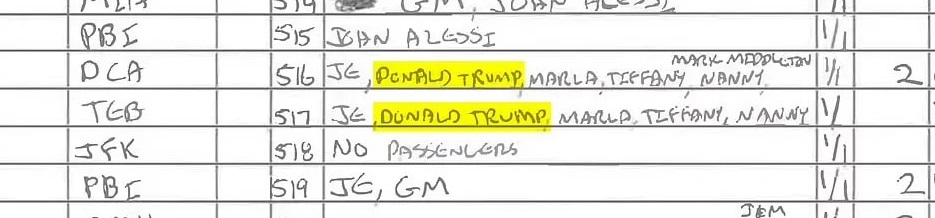 GM, JOAN ALESSI
PBI 515 JOAN ALESSI 1/1
MARK MIDDLETON
DCA 516 JE, DONALD TRUMP, MARLA, TIFFANY, NANNY 1/1 2
TEB 517 JE, DONALD TRUMP, MARLA, TIFFANY, NANNY 1/
JFK 518 NO PASSENGERS 1/1
PBI 519 JE, GM 1/1 2
JEM